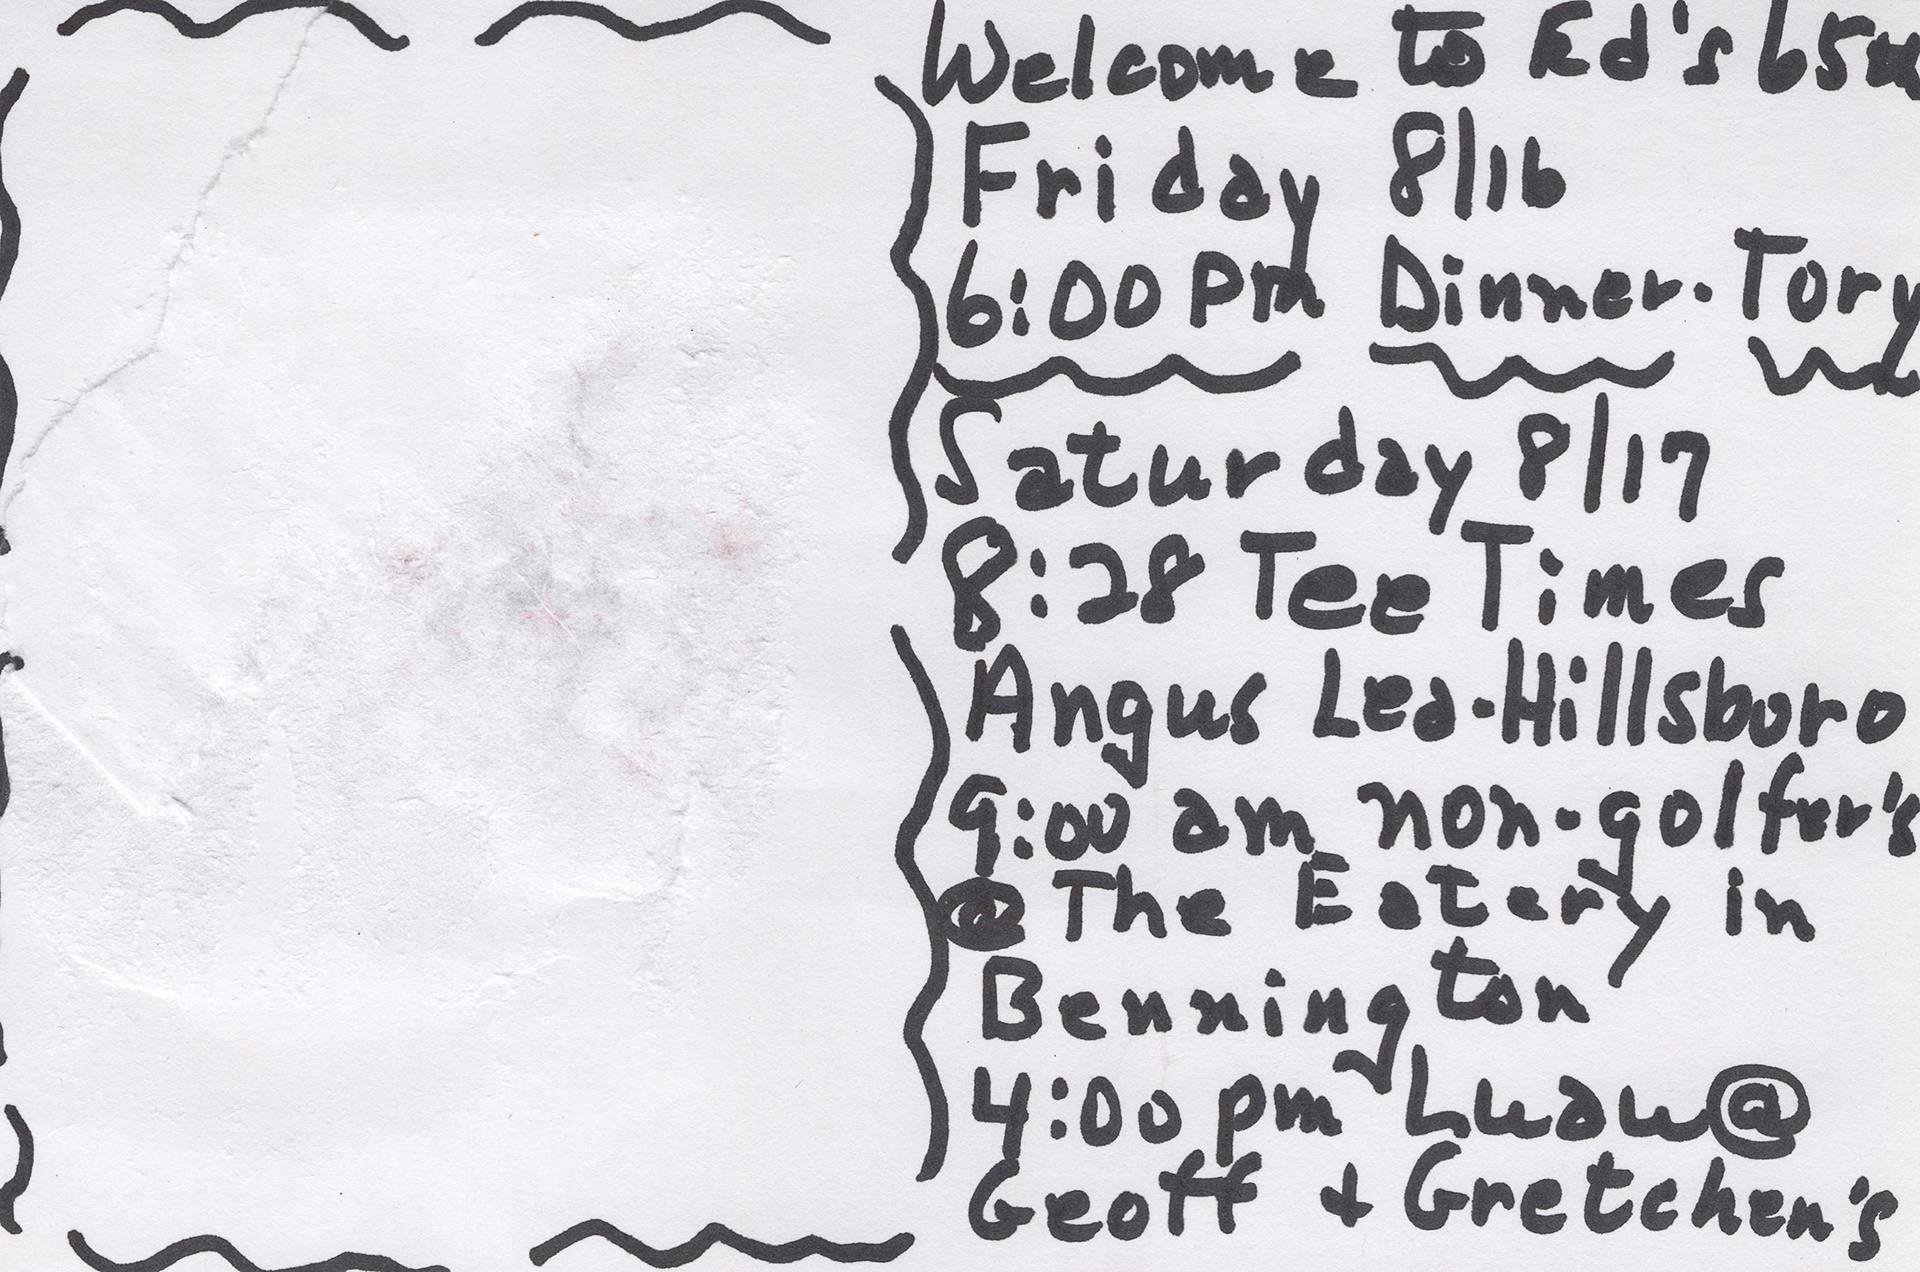 Welcome to Ed's 65th
Friday 8/16
6:00 pm Dinner. Tory
Saturday 8/17
8:28 Tee Times
Angus Lea-Hillsboro
9:00 am non-golfer's
@ The Eatery in
Bennington
4:00 pm Luau @
Geoff + Gretchen's